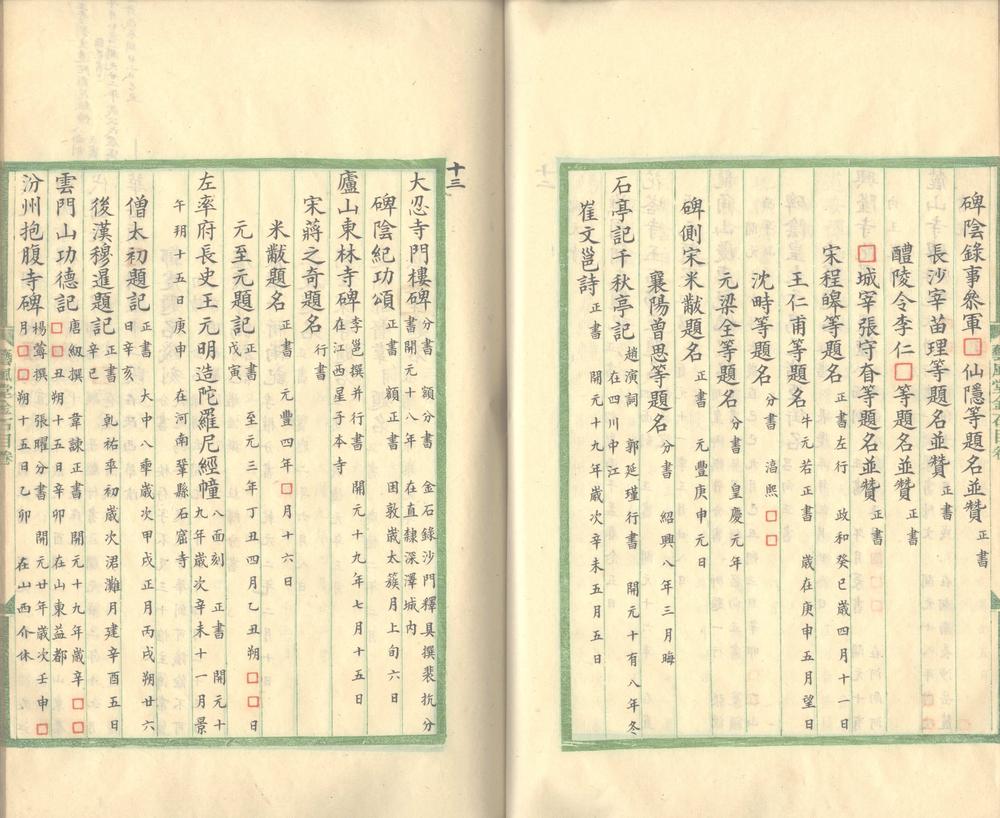 碑陰錄事參軍□仙隱等題名並贊 正書
長沙宰苗理等題名並贊 正書
醴陵令李仁□等題名並贊 正書
□城宰張守旾等題名並贊 正書
宋程皞等題名 正書左行 政和癸巳歲四月十二日
王仁甫等題名 牛元若正書 歲在庚申五月望日
沈時等題名 分書 淳熙□□
元梁全等題名 分書 皇慶元年
碑側宋米黻題名 正書 元豐庚申元日
襄陽曾思等題名 分書 紹興八年三月晦
石亭記千秋亭記 趙演詞 郭延瑾行書 開元十有八年冬
在四川中江
崔文邕詩 正書 開元十九年歲次辛未五月五日
十三
大忍寺門樓碑 分書 額分書 金石錄沙門釋具撰裴抗分
書開元十八年 在直隸深澤城內
碑陰紀功頌 正書 額正書 困敦歲太簇月上旬六日
廬山東林寺碑 李邕撰并行書 開元十九年七月十五日
在江西星子本寺
宋蔣之奇題名 行書
米黻題名 正書 元豐四年□月十六日
元至元題記 正書 至元三年丁丑四月乙丑朔□□日
戊寅
左率府長史王元明造陀羅尼經幢 八面刻 正書 開元十
九年歲次辛未十一月景
午朔十五日庚申 在河南鞏縣石窟寺
僧太初題記 正書 大中八秊歲次甲戌正月丙戌朔廿六
日辛亥
後漢穆暹題記 正書 乾祐秊初歲次涒灘月建辛酉五日
辛巳
雲門山功德記 唐紉撰 韋諫正書 開元十九年歲辛□□
□□丑朔十五日辛卯 在山東益都
汾州抱腹寺碑 楊蕚撰 張曜分書 開元廿年歲次壬申□
月□□朔十五日乙卯 在山西介休
藝風堂金石目卷